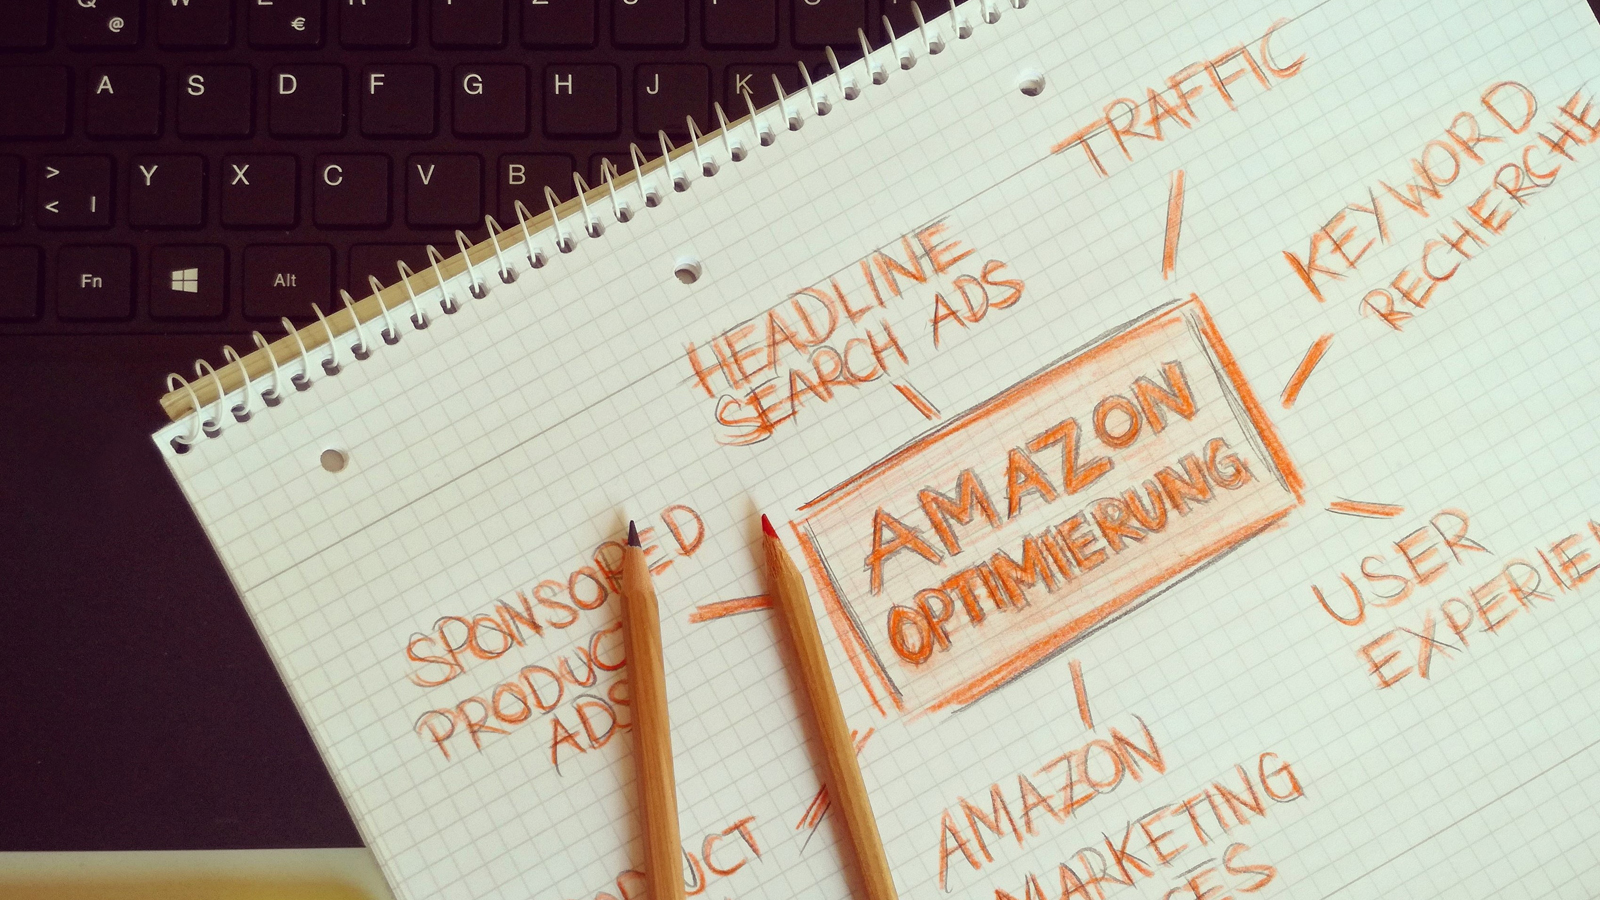 Q @
W
E €
R
T
Z
A
S
D
F
G
H
J
K
>
< |
Y
X
C
V
B
Fn
Alt
TRAFFIC
KEYWORD
RECHERCHE
HEADLINE
SEARCH ADS
AMAZON
OPTIMIERUNG
SPONSORED
PRODUCT
ADS
USER
AMAZON
MARKETING